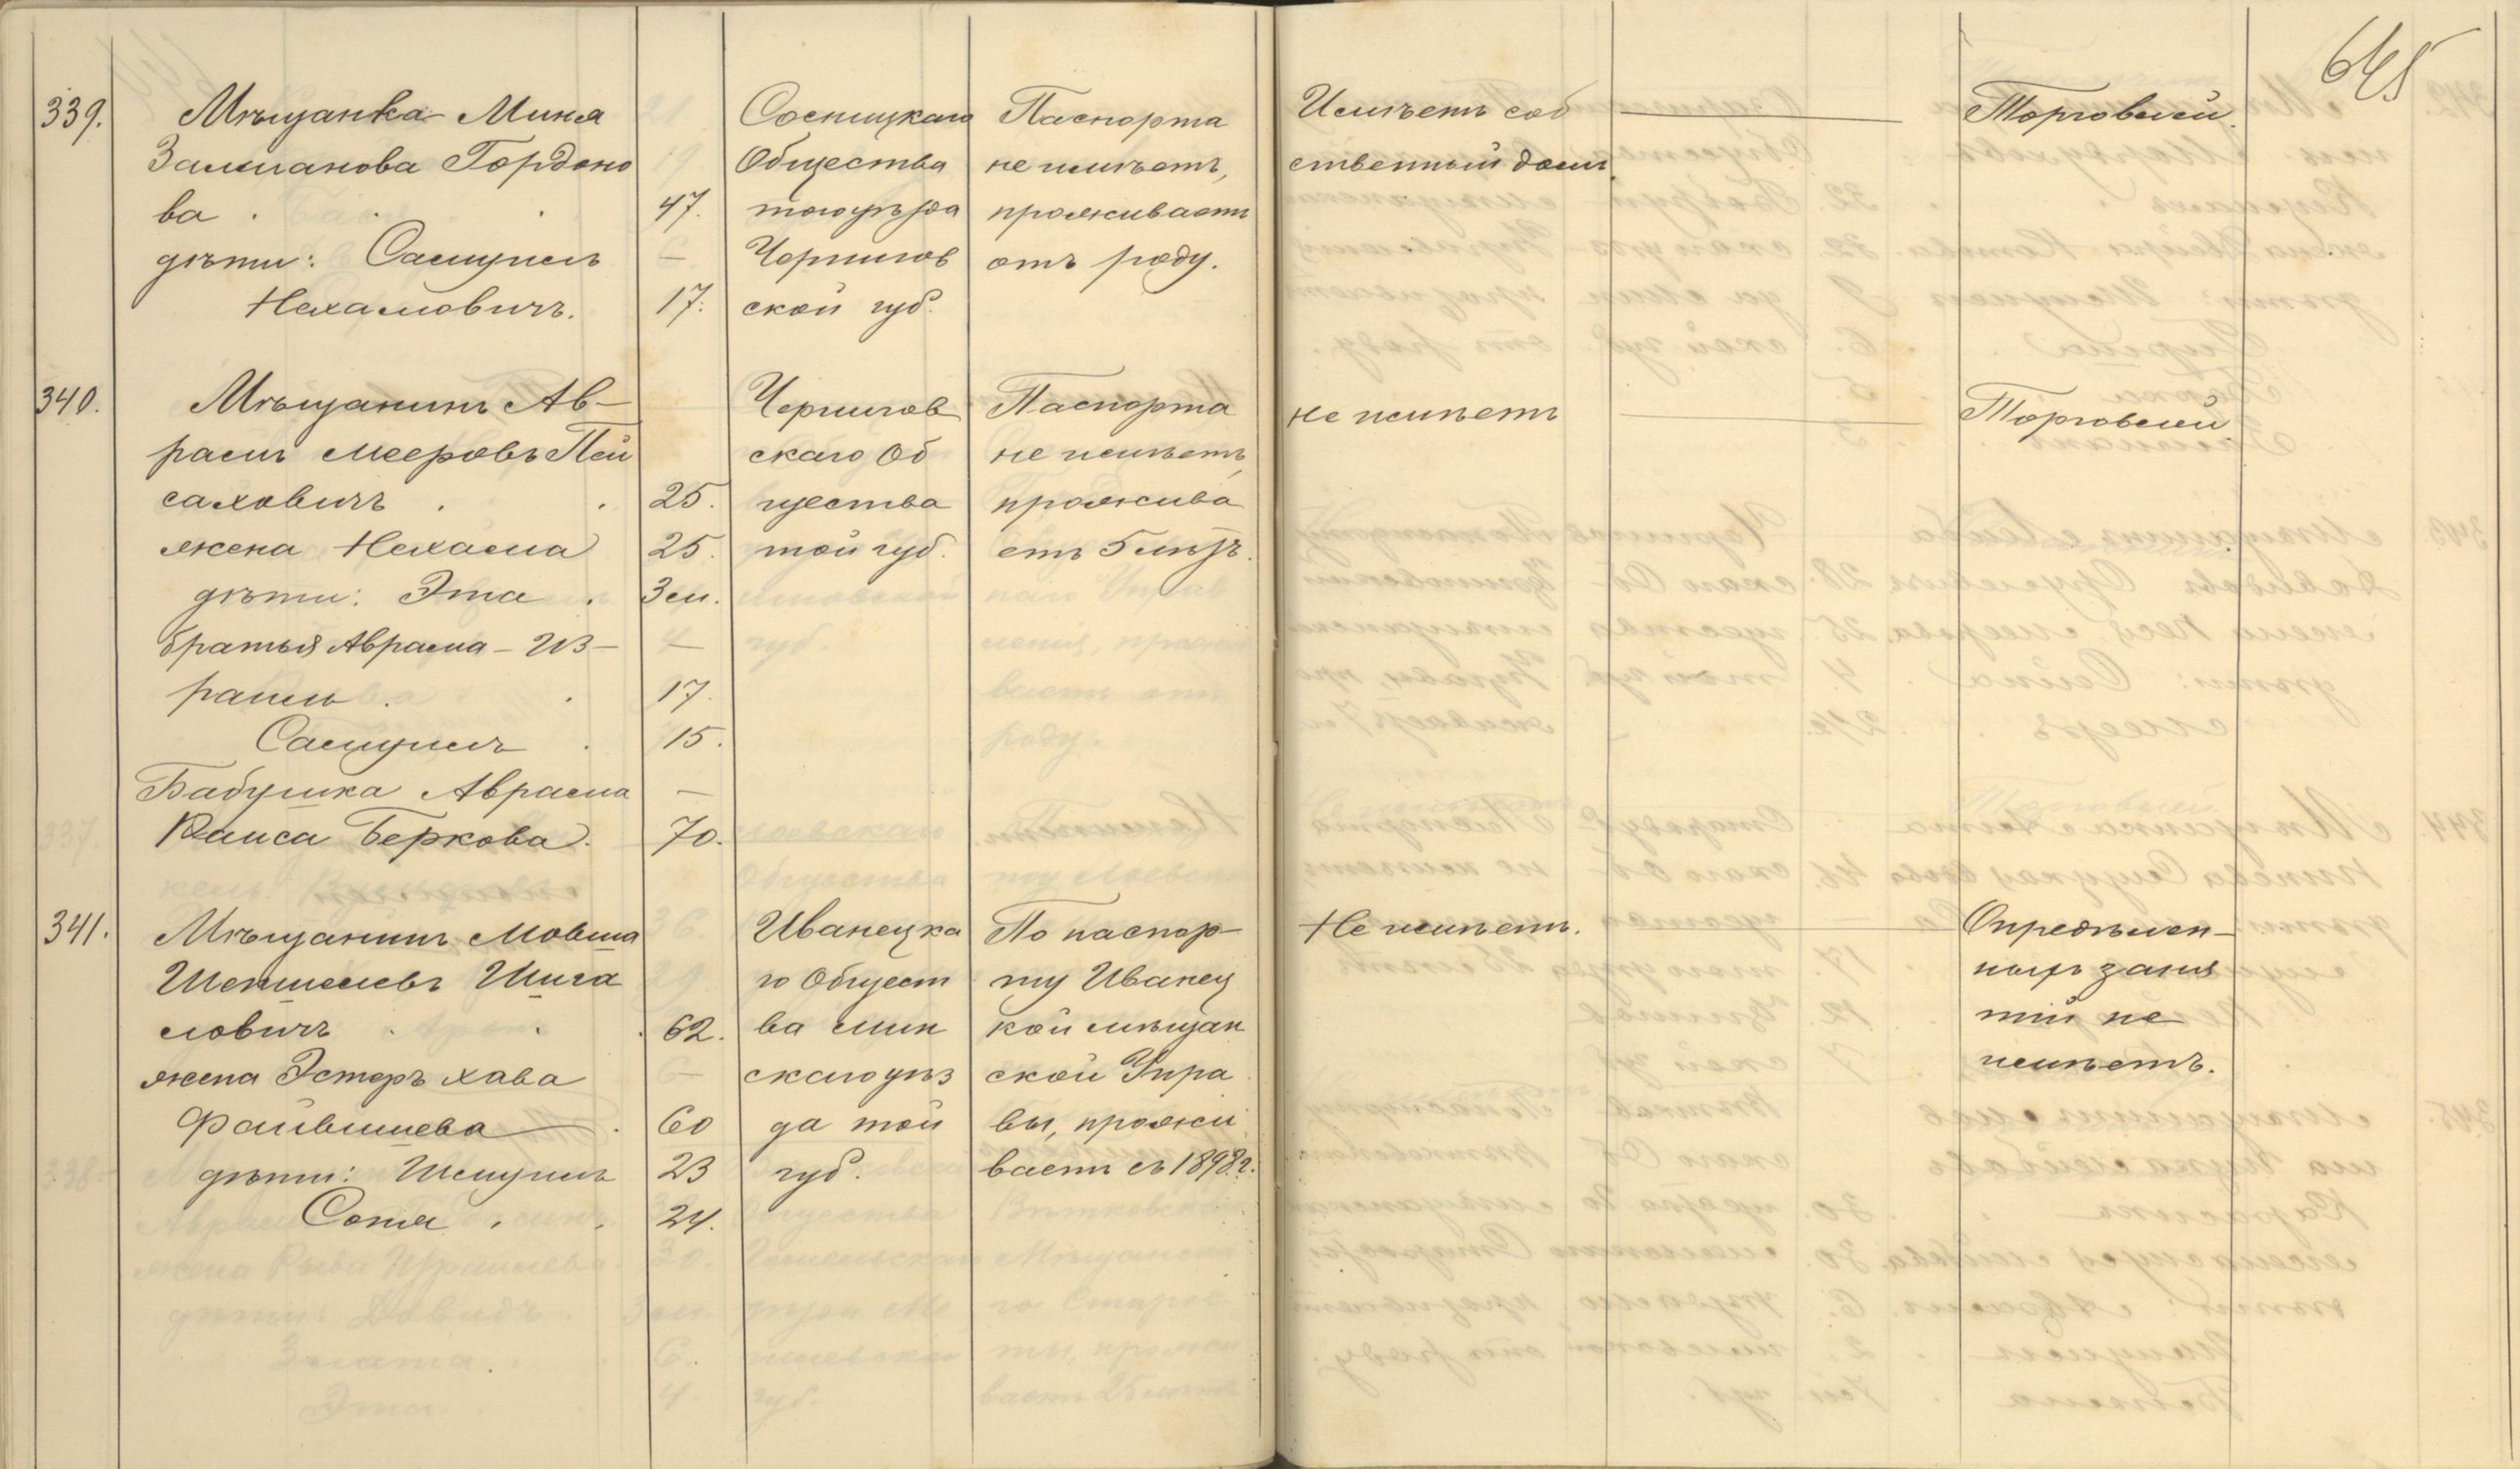 645
339.
Мѣщанка Миня
Залманова Гордоно
ва . . . 47.
дѣти: Самуилъ —
Нехамовичъ. 17.
Сосницкаго
Общества
того уѣзда
Чернигов
ской губ.
Паспорта
не имѣетъ,
проживаетъ
отъ роду.
Имѣетъ соб
ственный домъ.
Торговлей.
340.
Мѣщанинъ Ав-
рамъ Мееровъ Пей
саховичъ . . 25.
жена Нехама 25.
дѣти: Эта . 3 м.
братья Аврама - Из- —
раиль . . 17.
Самуилъ . 15.
Бабушка Аврама —
Раиса Беркова. 70.
Чернигов
скаго Об
щества
той губ.
Паспорта
не имѣетъ,
прожива
етъ 5 мѣс.
не имѣетъ
Торговлей
341.
Мѣщанинъ Мовша
Шепшелевъ Шига
ловичъ . . . 62.
жена Эстеръ Хава
Файвишева . 60
дѣти: Шмуилъ 23
Соня . . 24.
Иванецка
го Общест
ва Мин
скаго уѣз
да той
губ.
По паспор-
ту Иванец
кой мѣщан
ской Упра
вы, прожи
ваетъ съ 1898 г.
Не имѣетъ.
Опредѣлен-
ныхъ заня
тій не
имѣетъ.